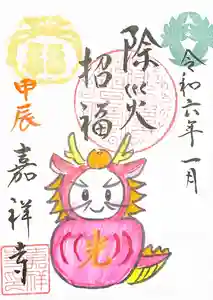 令和六年一月
除災
招福
甲辰
嘉祥寺
光